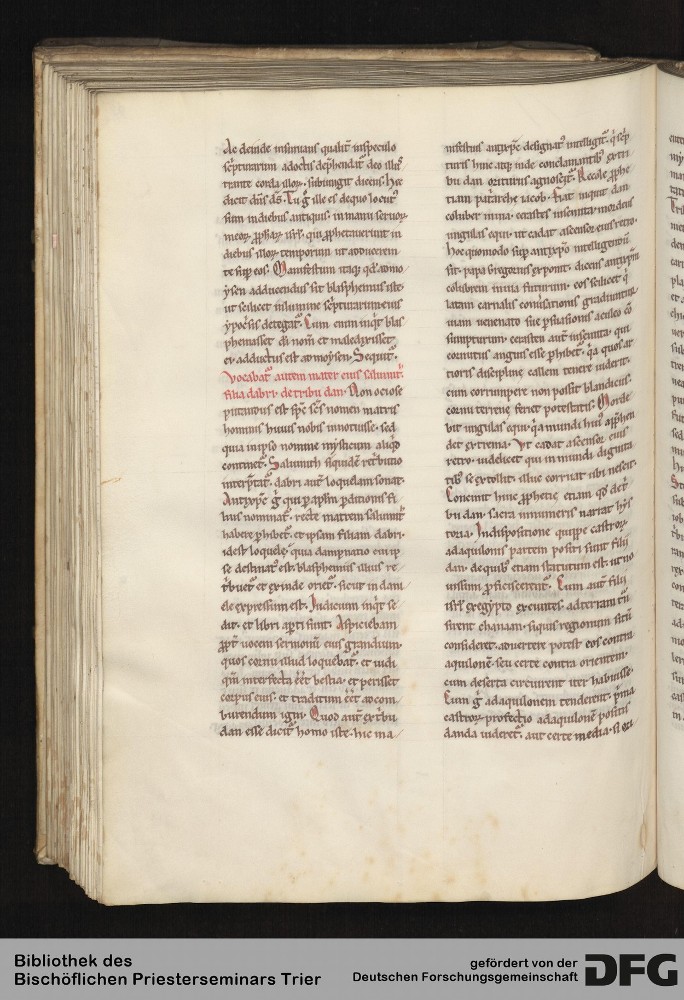 Ac deinde insinuans qualit̄ inspeculo
sc̄pturarum adoctis dep̄hendat̄ deo illuſ
trante corda illoꝝ. subiungit dicens. Hec
dicit dn̄s dſ̄. Tu g̊ ille es dequo locutꝰ
sum indiebus antiquis. inmanu seruoꝝ
meoꝝ ꝓphaꝝ isrl̄. qui ꝓphetauerunt in
diebus illoꝝ temporum ut adducerem
te sup̄ eos. Manifestum itaq; qd̓ admo
ysen adducendus sit blasphemus iste.
ut scilicet inlumine sc̄pturarum eius
ypoc̄sis detegat̄. Cum enim inq̇t blas
phemasset di nom̄ et maledixisset
ei. adductus est ad moysen. Sequit̄.
Vocabat̄ autem mater eius salumit̄
filia dabri. de tribu dan. Non ociose
putandus est sp̄c sc̄s nomen matris
hominis huius nobis innotuisse. sed
quia inipso nomine mysticum aliq̇d
continet̄. Salumith siquidem ret̓butio
interp̄tat̄. dabri aut̄ loquelam sonat.
Antixp̄c g̊ qui ꝑ apl̄m ꝑditionis fi
lius nominat̄. recte matrem salumit̄
habere ꝑhibet̄. et ipsam filiam dabri.
idest loquele. quia dampnatio eui ip
se destinatꝰ est. blasphemiis illius re
t̓buet̄ et exinde oriet̄. sicut in dani
ele expressum est. Iudicium inq̇t se
dit. et libri aꝑti sunt. Aspiciebam
ꝓpt̄ uocem sermonū eius grandium.
quos cornu illud loquebat̄. et uidi
qm̄ interfecta ēēt bestia. et perisset
corpus eius. et traditum ēēt ad com
burendum igni. Quod aut̄ ex t̓bu
dan esse dicit̄ homo iste. hic ma
nifestius antixp̄c designatꝰ intelligit̄. q̇ sc̄p
turis hinc atq; inde conclamantibꝰ ex tri
bu dan oriturus agnoscit̄. Recole ꝓphe
tiam pat̓arche iacob. Fiat inquit dan
coluber inuia. cerastes insemita. mordens
ungulas equi. ut cadat ascensor eius retro.
Hoc quomodo sup̄ antixp̄o intelligendū
sit. papa gregorius exponit. dicens antixp̄m
colubrem inuia futurum. eos scilicet q̇
latam carnalis conuersationis gradiuntur
uiam uenenato sue p̄suasionis aculeo cō
sumpturum. cerasten aut̄ insemita. qui
cornutus anguis esse ꝑhibet̄. q̇a quos ar
tioris discipline callem tenere uiderit.
eum corrumpere non possit blandiciis.
cornu terrene feriet potestatis. Morde
bit ungulas equi. q̇a mundi huiꝰ app̄hen
det extrema. Vt cadat ascensor eius
retro. uidelicet qui in mundi dignita
tibꝰ se extollit. illuc corruat ubi nescit.
Concinit huic ꝓphetie etiam qd̓ de t̓
bu dan. sacra innumeris narrat hys
toria. Indispositione quippe castroꝝ
ad aquilonis partem positi sunt filii
dan. de quibꝰ etiam statutum est. ut no
uissimi ꝓficiscerent̄. Cum aut̄ filii
isrl̄ exegypto exeuntes. ad terram tn̄
sirent chanaan. siquis regionum sitū
consideret. aduertere potest eos contra
aquilonē. seu certe contra orientem.
cum deserta circuirent iter habuisse.
Cum g̊ ad aquilonem tenderent. p̓ma
castroꝝ profectio ad aquilonē positis
danda uideret̄. aut certe media. si ori
Bibliothek des
Bischöflichen Priesterseminars Trier
gefördert von der
Deutschen Forschungsgemeinschaft
DFG